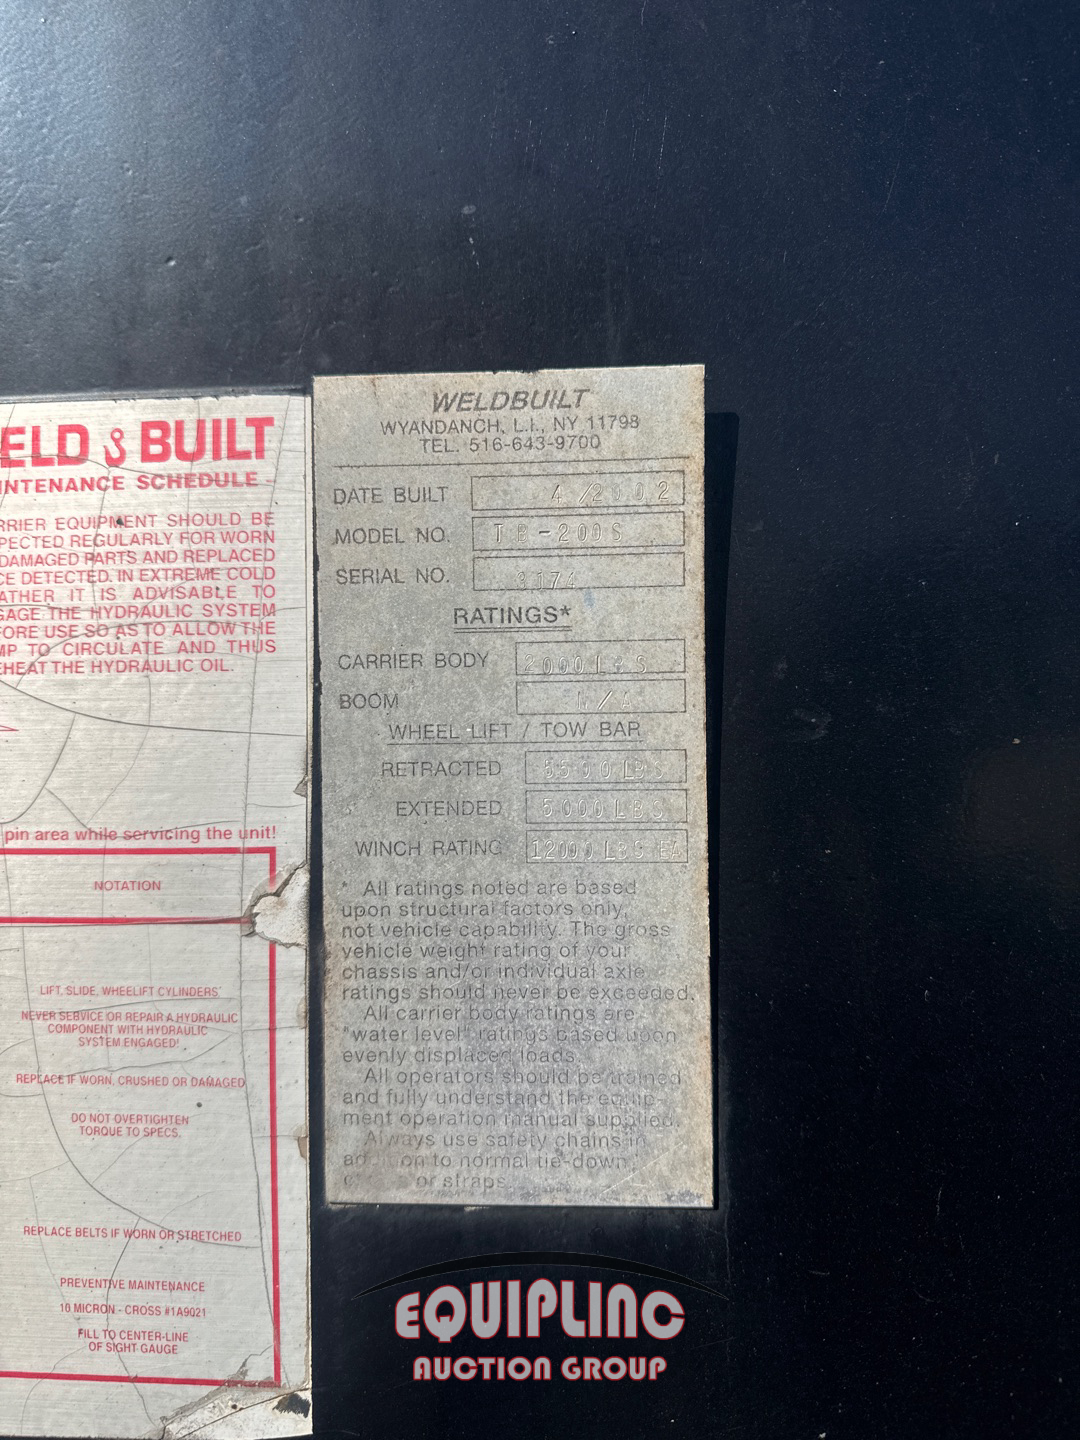 ELD & BUILT
INTENANCE SCHEDULE -
RRIER EQUIPMENT SHOULD BE
PECTED REGULARLY FOR WORN
DAMAGED PARTS AND REPLACED
CE DETECTED. IN EXTREME COLD
ATHER IT IS ADVISABLE TO
GAGE THE HYDRAULIC SYSTEM
FORE USE SO AS TO ALLOW THE
MP TO CIRCULATE AND THUS
EHEAT THE HYDRAULIC OIL.
pin area while servicing the unit!
NOTATION
LIFT, SLIDE, WHEELIFT CYLINDERS
NEVER SERVICE OR REPAIR A HYDRAULIC
COMPONENT WITH HYDRAULIC
SYSTEM ENGAGED!
REPLACE IF WORN, CRUSHED OR DAMAGED
DO NOT OVERTIGHTEN
TORQUE TO SPECS.
REPLACE BELTS IF WORN OR STRETCHED
PREVENTIVE MAINTENANCE
10 MICRON - CROSS #1A9021
FILL TO CENTER-LINE
OF SIGHT GAUGE
WELDBUILT
WYANDANCH, L.I., NY 11798
TEL. 516-643-9700
DATE BUILT 4/2002
MODEL NO. TB-200S
SERIAL NO. 3174
RATINGS*
CARRIER BODY 2000 LBS
BOOM N/A
WHEEL LIFT / TOW BAR
RETRACTED 5500 LBS
EXTENDED 5000 LBS
WINCH RATING 12000 LBS EA
* All ratings noted are based
upon structural factors only,
not vehicle capability. The gross
vehicle weight rating of your
chassis and/or individual axle
ratings should never be exceeded.
All carrier body ratings are
"water level" ratings based upon
evenly displaced loads.
All operators should be trained
and fully understand the equip-
ment operation manual supplied.
Always use safety chains in
addition to normal tie-down
or straps
EQUIPLINC
AUCTION GROUP